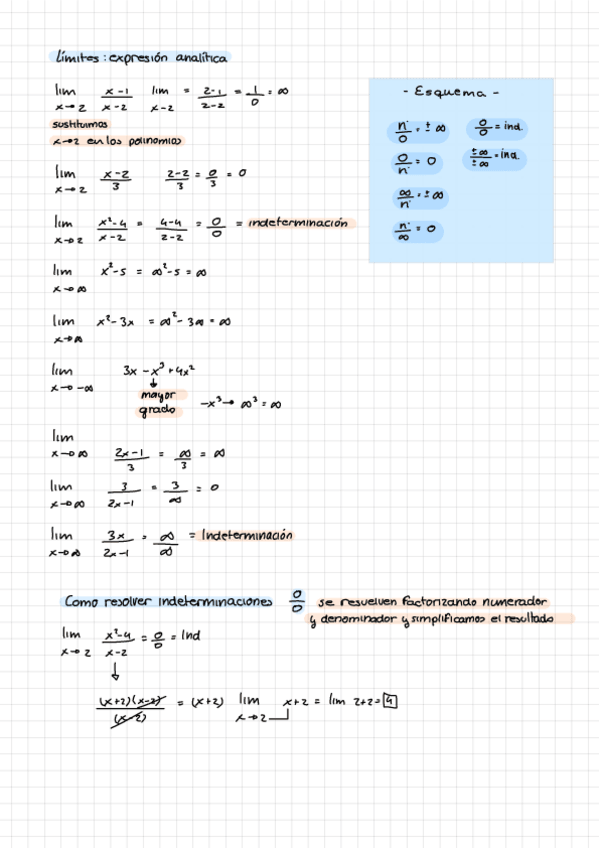 Límites: expresión analítica
lim x→2 x-1/x-2 lim x→2 = 2-1/2-2 = 1/0 = ∞
sustituimos
x→2 en los polinomios
lim x→2 x-2/3 2-2/3 = 0/3 = 0
lim x→2 x²-4/x-2 = 4-4/2-2 = 0/0 = indeterminación
lim x→∞ x²-5 = ∞²-5 = ∞
lim x→∞ x²-3x = ∞²-3∞ = ∞
lim x→-∞ 3x-x³+4x²
↓
mayor
grado -x³→ ∞³ = ∞
lim x→∞ 2x-1/3 = ∞/3 = ∞
lim x→∞ 3/2x-1 = 3/∞ = 0
lim x→∞ 3x/2x-1 = ∞/∞ = Indeterminación
- Esquema -
nº/0 = ±∞ 0/0 = ind.
0/nº = 0 ±∞/±∞ = ind.
∞/nº = ±∞
nº/∞ = 0
Como resolver indeterminaciones 0/0 se resuelven factorizando numerador
y denominador y simplificamos el resultado
lim x→2 x²-4/x-2 = 0/0 = Ind
↓
(x+2)(x-2)/(x-2) = (x+2) lim x→2 x+2 = lim 2+2=4